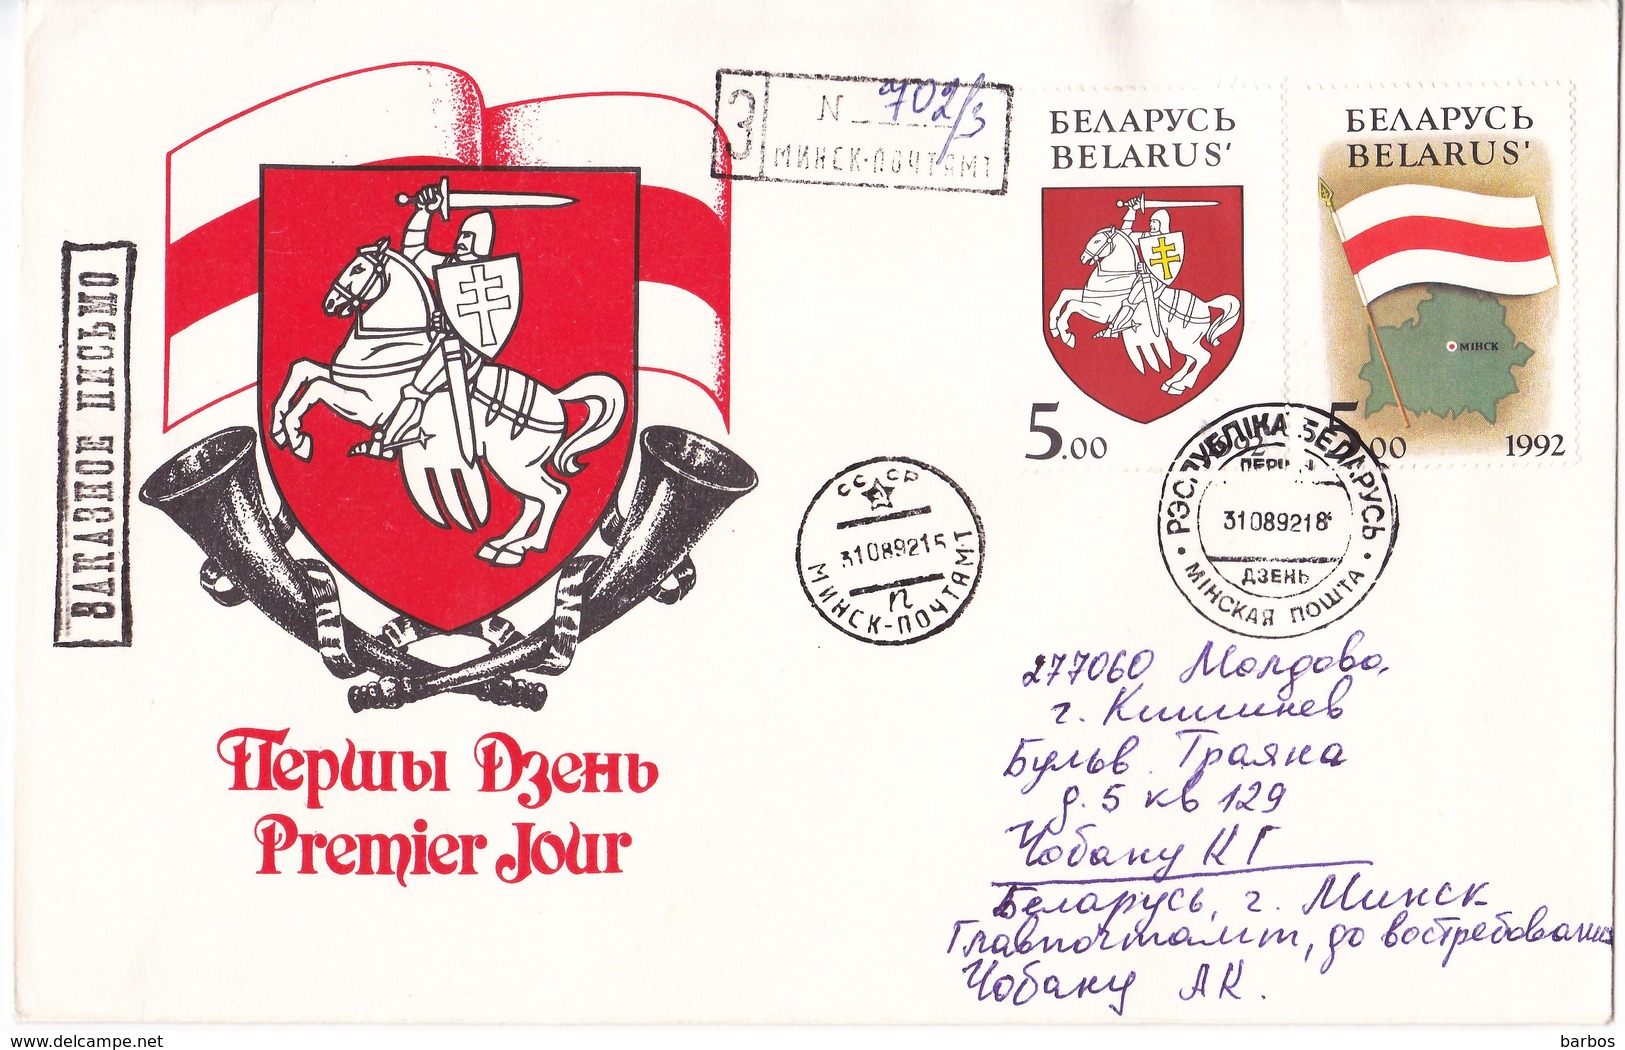 ЗАКАЗНОЕ ПИСЬМО
З
N 702/3
МИНСК-ПОЧТАМТ
БЕЛАРУСЬ
BELARUS'
5.00
БЕЛАРУСЬ
BELARUS'
МІНСК
5.00
1992
СССР
31089215
П
МИНСК-ПОЧТАМТ
РЭСПУБЛІКА БЕЛАРУСЬ
ПЕРШЫ
31089218
ДЗЕНЬ
МІНСКАЯ ПОШТА
Першы Дзень
Premier Jour
277060 Молдова,
г. Кишинев
Бульв. Траяна
д. 5 кв 129
Чобану К Г
Беларусь, г. Минск
Главпочтамт, до востребования
Чобану А К.
barbos